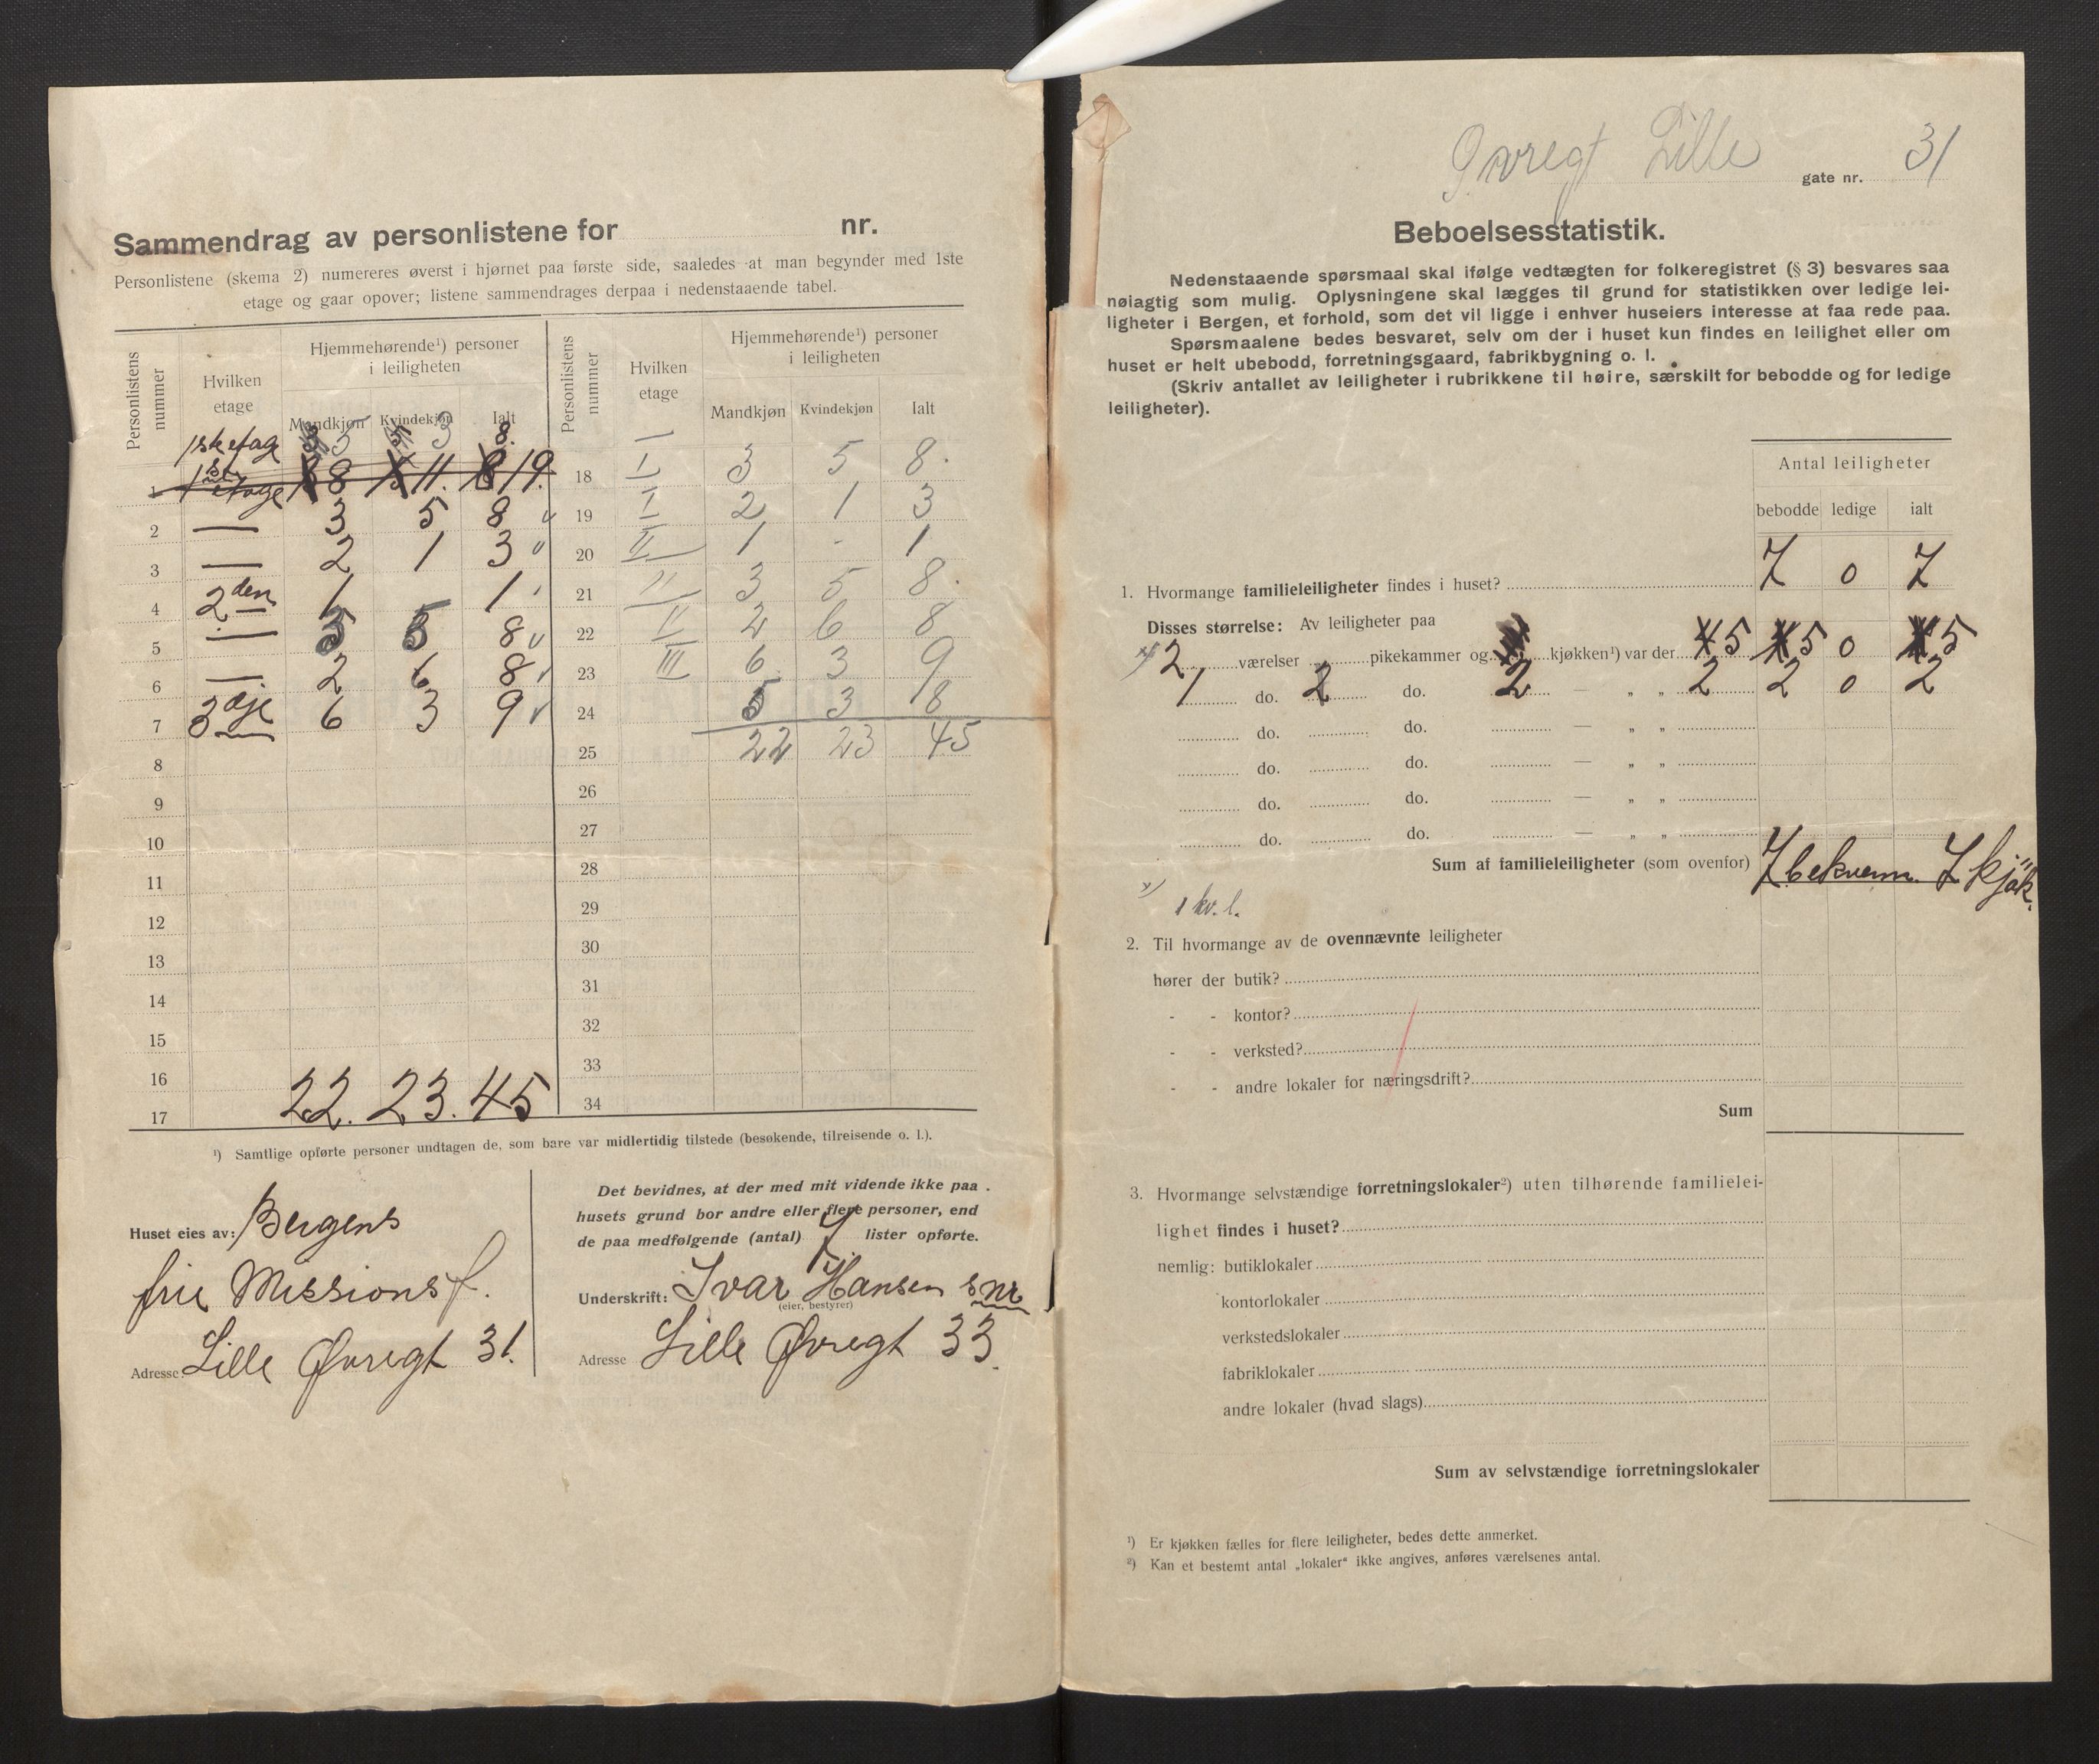 Sammendrag av personlistene for nr.
Personlistene (skema 2) numereres øverst i hjørnet paa første side, saaledes at man begynder med 1ste
etage og gaar opover; listene sammendrages derpaa i nedenstaaende tabel.
Personlistens nummer
Hvilken etage
Hjemmehørende¹) personer i leiligheten
Mandkjøn Kvindekjøn Ialt
1ste etage 3 8.
1 1ste etage 8 11. 19.
2 — 3 5 8
3 — 2 1 3
4 2den 1 1
5 — 5 8
6 — 2 6 8
7 3dje 6 3 9
8
9
10
11
12
13
14
15
16
17 22. 23. 45
Personlistens nummer
Hvilken etage
Hjemmehørende¹) personer i leiligheten
Mandkjøn Kvindekjøn Ialt
18 I 3 5 8
19 I 2 1 3
20 II 1 - 1
21 II 3 5 8
22 II 2 6 8
23 III 6 3 9
24 5 3 8
25 22 23 45
26
27
28
29
30
31
32
33
34
¹) Samtlige opførte personer undtagen de, som bare var midlertidig tilstede (besøkende, tilreisende o. l.).
Huset eies av: Bergens
frie Missionsf.
Adresse: Lille Øvregt 31.
Det bevidnes, at der med mit vidende ikke paa
husets grund bor andre eller flere personer, end
de paa medfølgende (antal) 7 lister opførte.
Underskrift: Ivar Hansen snr
(eier, bestyrer)
Adresse Lille Øvregt 33.
Øvregt Lille gate nr. 31
Beboelsesstatistik.
Nedenstaaende spørsmaal skal ifølge vedtægten for folkeregistret (§ 3) besvares saa
nøiagtig som mulig. Oplysningene skal lægges til grund for statistikken over ledige lei-
ligheter i Bergen, et forhold, som det vil ligge i enhver huseiers interesse at faa rede paa.
Spørsmaalene bedes besvaret, selv om der i huset kun findes en leilighet eller om
huset er helt ubebodd, forretningsgaard, fabrikbygning o. l.
(Skriv antallet av leiligheter i rubrikkene til høire, særskilt for bebodde og for ledige
leiligheter).
Antal leiligheter
bebodde ledige ialt
1. Hvormange familieleiligheter findes i huset? 7 0 7
Disses størrelse: Av leiligheter paa
x) 2 værelser pikekammer og kjøkken¹) var der 5 5 0 5
1 do. 2 do. 2 — „ „ 2 2 0 2
do. do. — „ „
do. do. — „ „
do. do. — „ „
do. do. — „ „
Sum af familieleiligheter (som ovenfor) 7 bekvem. 7 kjøk.
x) 1 kv. l.
2. Til hvormange av de ovennævnte leiligheter
hører der butik?
- - kontor?
- - verksted?
- - andre lokaler for næringsdrift?
Sum
3. Hvormange selvstændige forretningslokaler²) uten tilhørende familielei-
lighet findes i huset?
nemlig: butiklokaler
kontorlokaler
verkstedslokaler
fabriklokaler
andre lokaler (hvad slags)
Sum av selvstændige forretningslokaler
¹) Er kjøkken fælles for flere leiligheter, bedes dette anmerket.
²) Kan et bestemt antal „lokaler“ ikke angives, anføres værelsenes antal.